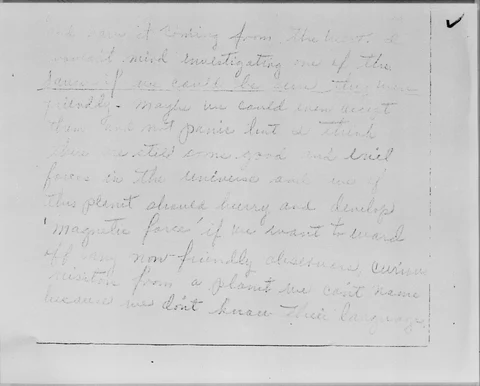 saw it coming from the
mind investigating one of the
if we could be sure they were
friendly. Maybe we could even accept
them and not panic but I think
there are still some good and evil
forces in the universe and we of
this planet should hurry and develop
'magnetic force' if we want to ward
off any non-friendly observers, curious
visitors from a planet we can't name
because we don't know their language.